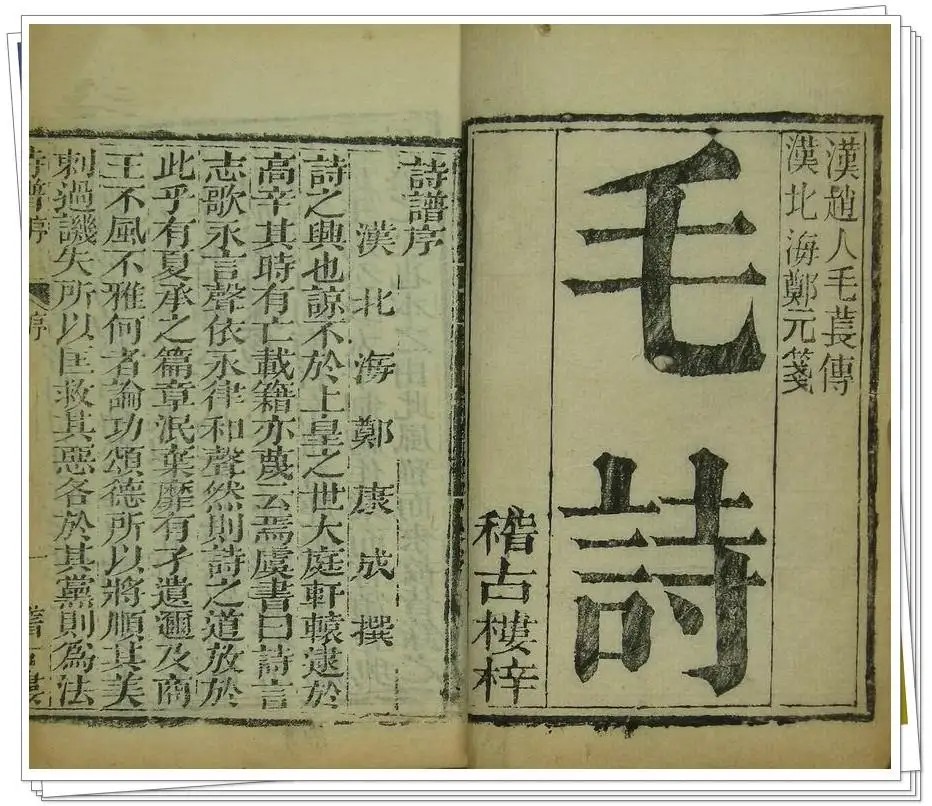 漢趙人毛萇傳
漢北海鄭元箋
毛詩
稽古樓梓
詩譜序
漢北海鄭康成撰
詩之興也諒不於上皇之世大庭軒轅逮於
高辛其時有亡載籍亦蔑云焉虞書曰詩言
志歌永言聲依永律和聲然則詩之道放於
此乎有夏承之篇章泯棄靡有孑遺邇及商
王不風不雅何者論功頌德所以將順其美
刺過譏失所以匡救其惡各於其黨則為法
詩譜序
序
一